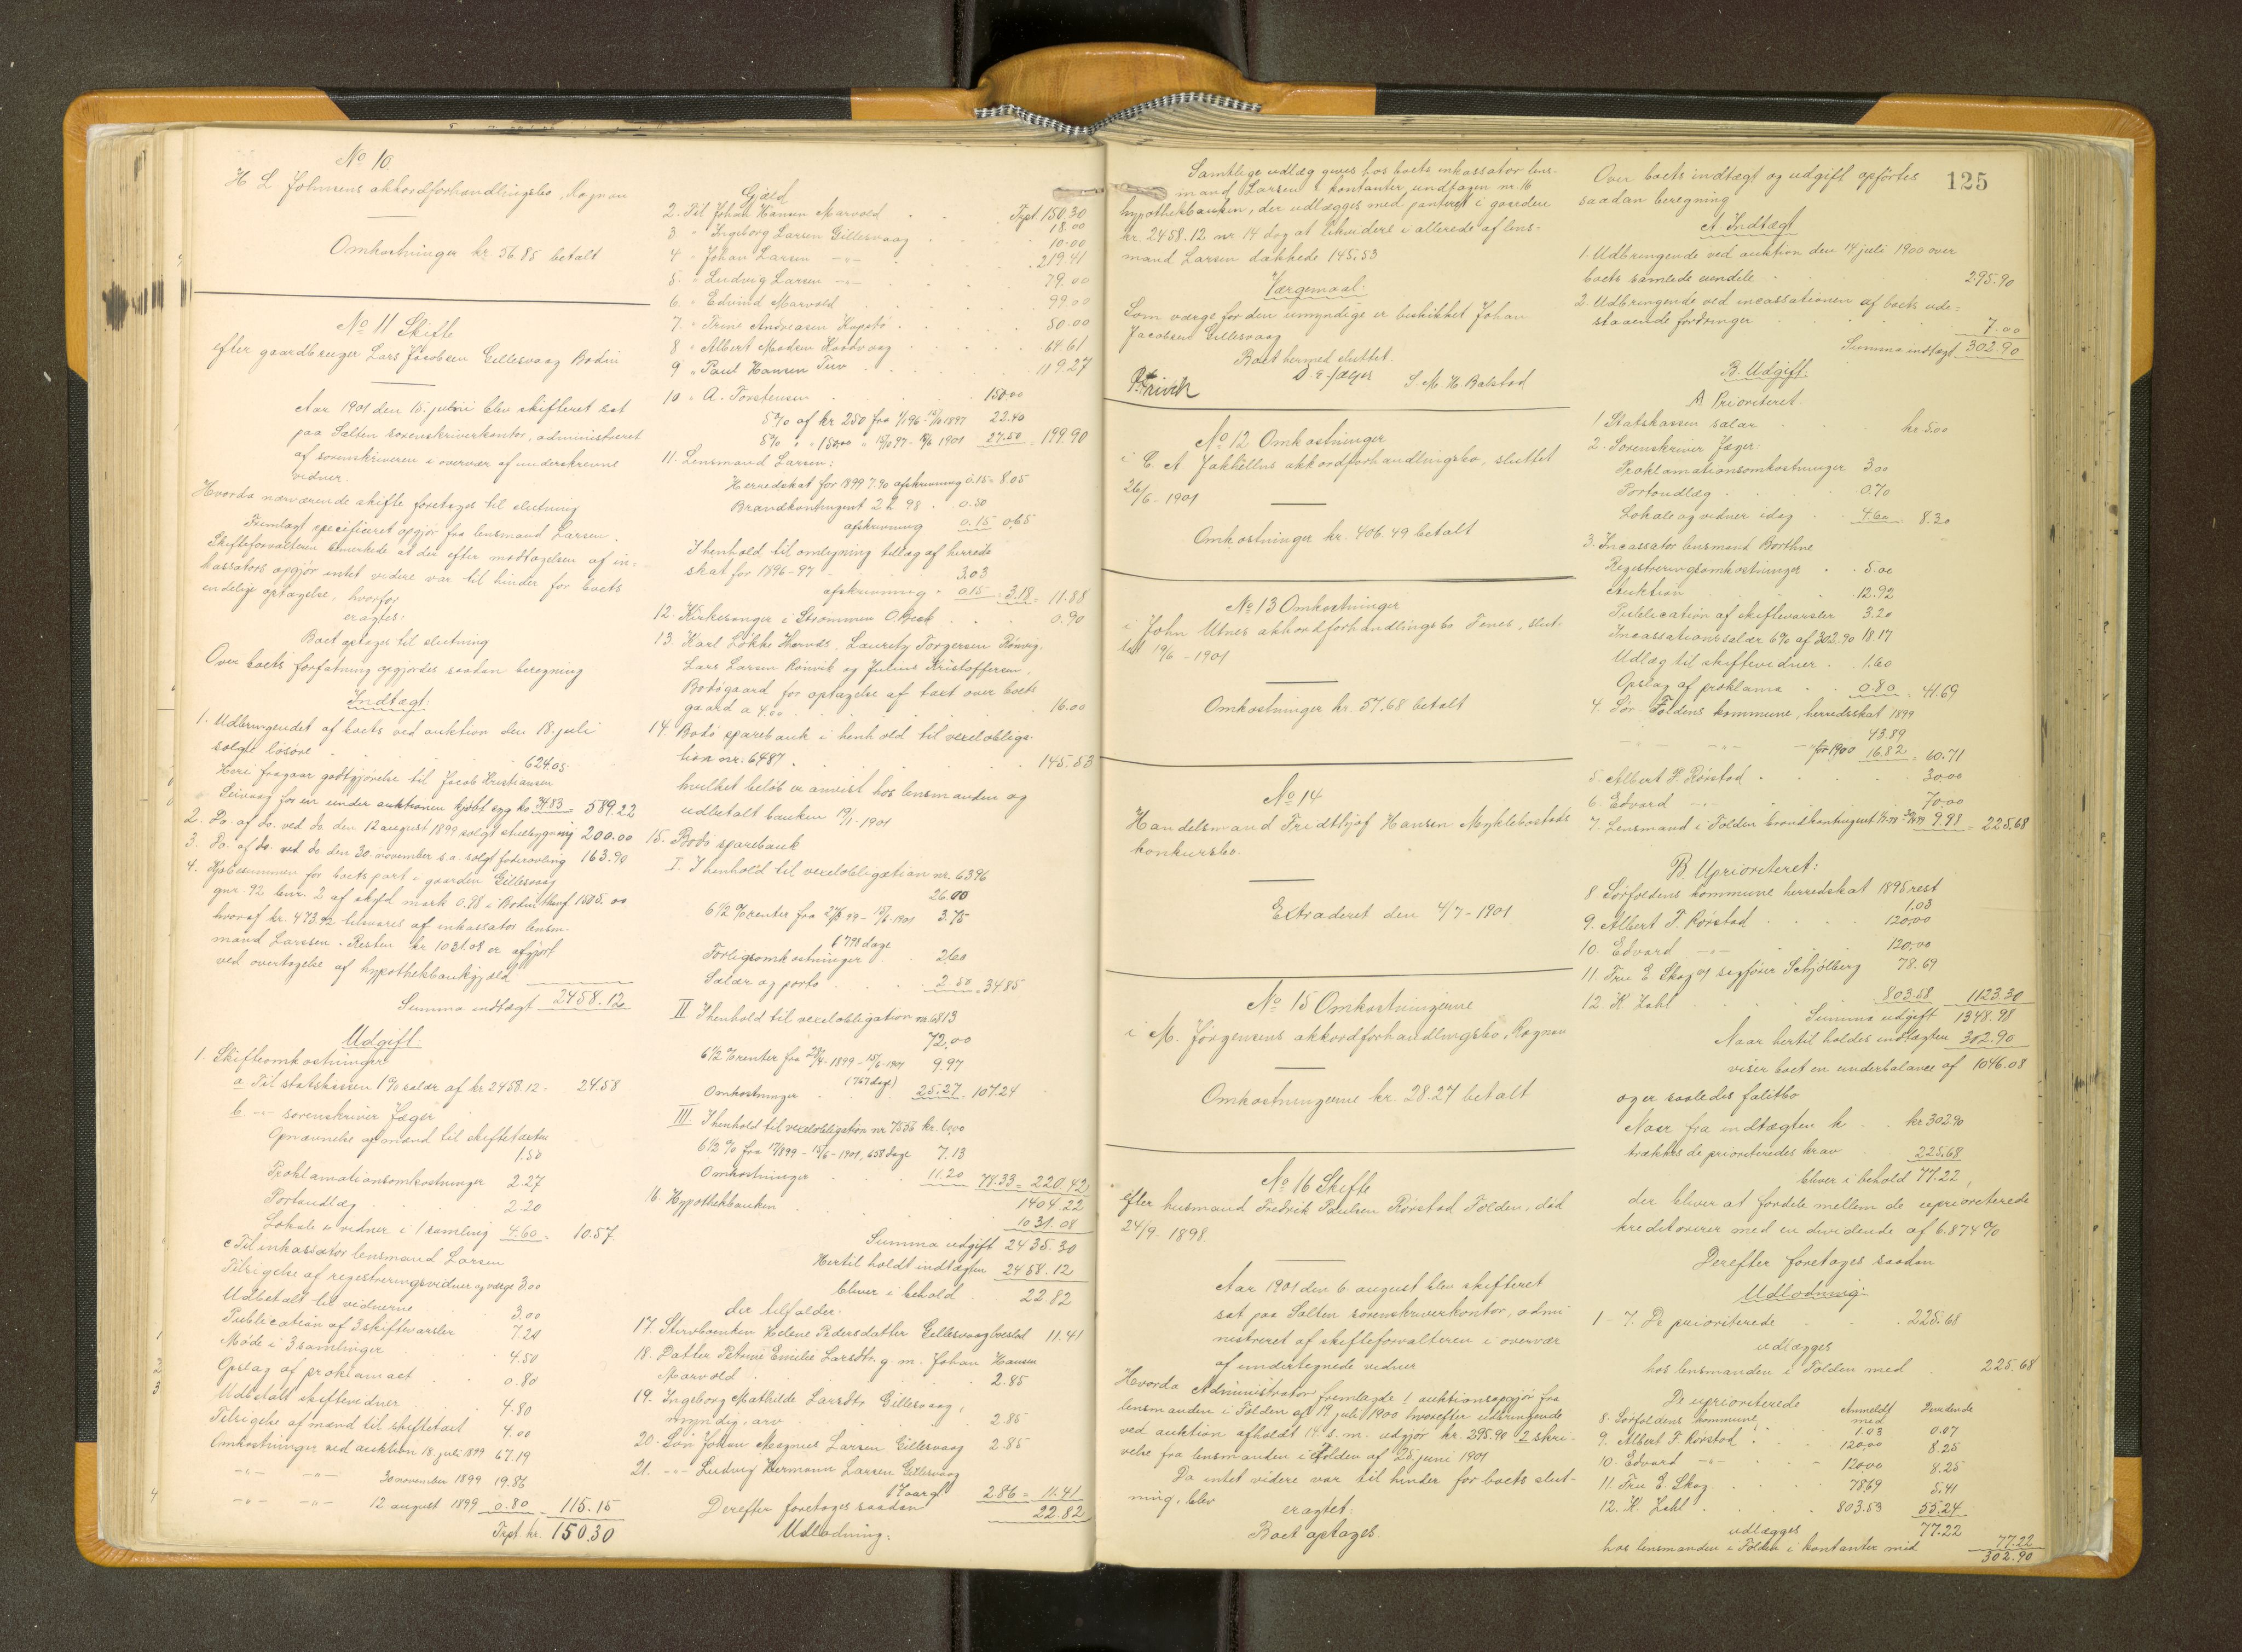 No 10.
H L Johnsens akkordforhandlingsbo, Rognan
Omkostninger kr 56.85 betalt
No 11 Skifte
efter gaardbruger Lars Jacobsen Gillesvaag Bodin
Aar 1901 den 15. juni blev skifteret sat
paa Salten sorenskriverkontor, administreret
af sorenskriveren i overvær af underskrevne
vidner.
Hvorda nærværende skifte foretages til slutning
Fremlagt specificeret opgjør fra lensmand Larsen.
Skifteforvalteren bemerkede at der efter modtagelsen af in-
kassators opgjør intet videre var til hinder for boets
endelige optagelse, hvorfor
eragtes:
Boet optages til slutning
Over boets forfatning opgjordes saadan beregning
Indtægt:
1. Udbringendet af boets ved auktion den 18. juli
solgte løsøre 624.05
Heri fragaar godtgjørelse til Jacob Kristiansen
Seivaag for en under auktionen kjøbt syg ko 34.83 589.22
2. Do. af do. ved do. den 12 august 1899 solgt stuebygning 200.00
3. Do. af do. ved do den 30. november s.a. solgt foderavling 163.90
4. Kjøbesummen for boets part i gaarden Gillesvaag
gnr. 92 bnr. 2 af skyld mark 0.98 i Bodin 1505.00
hvoraf kr. 473.92 tilsvares af inkassator lens-
mand Larssen. Resten kr 1031.08 er afgjort
ved overtagelse af hypothekbankgjæld
Summa indtægt 2458.12
Udgift:
1. Skifteomkostninger
a Til statskassen 1% salær af kr 2458.12 - 24.58
b. -"- sorenskriver Jæger
Opnævnelse af mænd til skiftetaxten
1.50
Proklamationsomkostninger 2.27
Portoudlæg 2.20
Lokale & vidner i 1 samling 4.60 = 10.57
c Til inkassator lensmand Larsen
Tilsigelse af registreringsvidner og værge 3.00
Udbetalt til vidnerne 3.00
Publication af 3 skiftevarsler 7.20
Møde i 3 samlinger 4.50
Opslag af proklamaet 0.80
Udbetalt skiftevidner 4.80
Tilsigelse af mænd til skiftetaxt 4.00
Omkostninger ved auktion 18. juli 1899 67.19
-"- -"- 30 november 1899 19.86
-"- -"- 12 august 1899 0.80 = 115.15
Trpt. kr. 150.30
Gjæld
Trpt. 150.30
2. Til Johan Hansen Marvold 18.00
3 " Ingeborg Larsen Gillesvaag 10.00
4 " Johan Larsen -"- 219.41
5. " Ludvig Larsen -"- 79.00
6. " Edvind Marvold 99.00
7. " Trine Andreasen Kapstø 80.00
8 " Albert Madsen Kvadvaag 64.61
9 " Paul Hansen Tuv 119.27
10 " A. Torstensen 150.00
5% af kr 250 fra 1/1 96 - 1897 22.40
5% " " 150.00 " 97 - 1901 27.50 = 199.90
11. Lensmand Larsen:
Herredskat for 1899 7.90 afskrivning 0.15 = 8.05
Brandkontingent 2 h 98 0.50
afskrivning 0.15 0.65
I henhold til omligning tillæg af herreds
skat for 1896-97 3.03
afskrivning 0.15 = 3.18 = 11.88
12. Kirkesanger i Strømmen O. Beck 0.90
13. Karl Løkke Hernds, Lauritz Torgersen Rønvig,
Lars Larsen Rønvik og Julius Kristoffersen,
Bodøgaard for optagelse af taxt over boets
gaard a 4.00 16.00
14. Bodø sparebank i henhold til vexelobliga-
tion nr. 6487 145.53
hvilket beløb er anvist hos lensmanden og
udbetalt banken 19/1-1901
15. Bodø sparebank
I. I henhold til vexelobligation nr. 6396
26.00
6 1/2 % renter fra 27/3 99 - 15/6-1901 3.75
798 dage
Forligsomkostninger 2.60
Salær og porto 2.50 = 34.85
II I henhold til vexelobligation nr. 6813
72.00
6 1/2 % renter fra 29/4-1899 - 15/6-1901 9.97
(767 dage)
Omkostninger 25.27 = 107.24
III. I henhold til vexelobligation nr 7556 kr. 60.00
6 1/2 % fra 1899 - 15/6-1901, 658 dage 7.13
Omkostninger 11.20 78.33 = 220.42
1404.22
16. Hypothekbanken 1031.08
Summa udgift 2435.30
Hertil holdt indtægten 2458.12
bliver i behold 22.82
der tilfalder:
17. Stervboenken Helene Pedersdatter Gillesvaag boeslod 11.41
18. Datter Petrine Emilie Larsdtr. g. m. Johan Hansen
Marvold 2.85
19. Ingeborg Mathilde Larsdtr Gillesvaag,
myndig, arv 2.85
20. Søn Johan Magnus Larsen Gillesvaag 2.85
21. -"- Ludvig Hermann Larsen Gillesvaag
17 aar gl. 2.86 = 11.41
22.82
Derefter foretages saadan
Udlodning:
Samtlige udlæg gives hos boets inkassator lens-
mand Larsen i kontanter undtagen nr. 16
hypothekbanken, der udlægges med panteret i gaarden
kr. 2458.12 nr 14 dog at likvidere i allerede af lens-
mand Larsen dækkede 145.53
Værgemaal:
Som værge for den umyndige er beskikket Johan
Jacobsen Gillesvaag
Boet hermed sluttet.
D. E. Jæger
S. M. H. Balstad
No 12 Omkostninger
i C. A Jakhellns akkordforhandlingsbo, sluttet
26/6-1901
Omkostninger kr. 406.49 betalt
No 13 Omkostninger
i John Utnes akkordforhandlingsbo Fenes, slut-
tet 19/6-1901
Omkostninger kr. 57.68 betalt
No 14
Handelsmand Fridthjof Hansen Myklebostads
konkursbo.
Extraderet den 4/7-1901
No 15 Omkostningerne
i M. Jørgensens akkordforhandlingsbo, Rognan
Omkostningerne kr. 28.27 betalt
No 16 Skifte
efter husmand Fredrik Paulsen Rørstad Folden, død
24/9-1898.
Aar 1901 den 6. august blev skifteret
sat paa Salten sorenskriverkontor, admi-
nistreret af skifteforvalteren i overvær
af undertegnede vidner
Hvorda Administrator fremlagde 1 auktionsopgjør fra
lensmanden i Folden af 19 juli 1900 hvorefter udbringende
ved auktion afholdt 14. s. m. udgjør kr. 295.90 2 skri-
velse fra lensmanden i Folden af 25. juni 1901
Da intet videre var til hinder for boets slut-
ning, blev
eragtet:
Boet optages.
125
Over boets indtægt og udgift opførtes
saadan beregning
A. Indtægt
1. Udbringende ved auktion den 14 juli 1900 over
boets samlede eiendele 295.90
2. Udbringende ved incassationen af boets ude-
staaende fordringer 7.00
Summa indtægt 302.90
B. Udgift:
A Prioriteret.
1 Statskassen salær kr. 5.00
2. Sorenskriver Jæger:
Proklamationsomkostninger 3.00
Portoudlæg 0.70
Lokale og vidner idag 4.60 8.30
3. Incassator lensmand Borthne
Registreringsomkostninger 5.00
Auktion 12.92
Publication af skiftevarsler 3.20
Incassationssalær 6% af 302.90 18.17
Udlæg til skiftevidner 1.60
Opslag af proklama 0.80 = 41.69
4. Sør-Foldens kommune, herredsskat 1899
43.89
-"- -"- -"- for 1900 16.82 = 60.71
5. Albert F. Rørstad 30.00
6. Edvard -"- 70.00
7. Lensmand i Folden brandkontingent 9.98 = 225.68
B. Uprioriteret:
8. Sørfoldens kommune herredskat 1898 rest
1.03
9. Albert F. Rørstad 120.00
10. Edvard -"- 120.00
11 Fru E Skog og sagfører Schjølberg 78.69
12. K. Zahl 803.58 1123.30
Summa udgift 1348.98
Naar hertil holdes indtægten 302.90
viser boet en underbalance af 1046.08
og er saaledes falitbo
Naar fra indtægten kr. 302.90
trækkes de prioriteredes krav 225.68
bliver i behold 77.22,
der bliver at fordele mellem de uprioriterede
kreditorerer med en dividende af 6.874%
Derefter foretages saadan
Udlodning:
1 - 7. De prioriterede 225.68
udlægges
hos lensmanden i Folden med 225.68
De uprioriterede Anmeldt Dividende
8. Sørfoldens kommune med 1.03 0.07
9. Albert F. Rørstad 120.00 8.25
10. Edvard -"- 120.00 8.25
11. Fru E. Skog 78.69 5.41
12. K. Zahl 803.53 55.24
udlægges 77.22
hos lensmanden i Folden i kontanter med 77.22
302.90